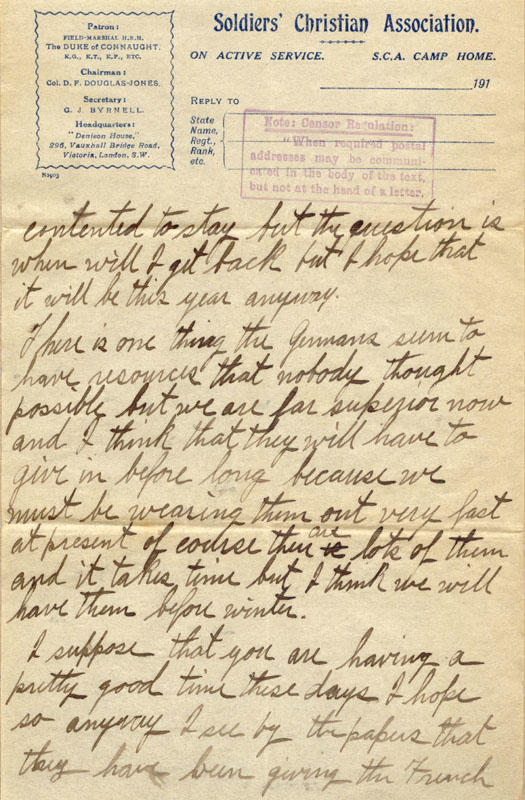 Patron:
FIELD-MARSHAL H.R.H.
The DUKE of CONNAUGHT.
K.G., K.T., K.P., ETC.
Chairman:
Col. D. F. DOUGLAS-JONES.
Secretary:
G. J. BYRNELL.
Headquarters:
"Denison House,"
296, Vauxhall Bridge Road,
Victoria, London, S.W.
Soldiers' Christian Association.
ON ACTIVE SERVICE. S.C.A. CAMP HOME.
191
REPLY TO
State
Name,
Regt.,
Rank,
etc.
Note: Censor Regulation:
"When required postal
addresses may be communi-
cated in the body of the text,
but not at the head of a letter.
contented to stay but the question is
when will I get back but I hope that
it will be this year anyway.
There is one thing the Germans seem to
have resources that nobody thought
possible but we are far superior now
and I think that they will have to
give in before long because we
must be wearing them out very fast
at present of course there are lots of them
and it takes time but I think we will
have them before winter.
I suppose that you are having a
pretty good time these days I hope
so anyway I see by the papers that
they have been giving the French